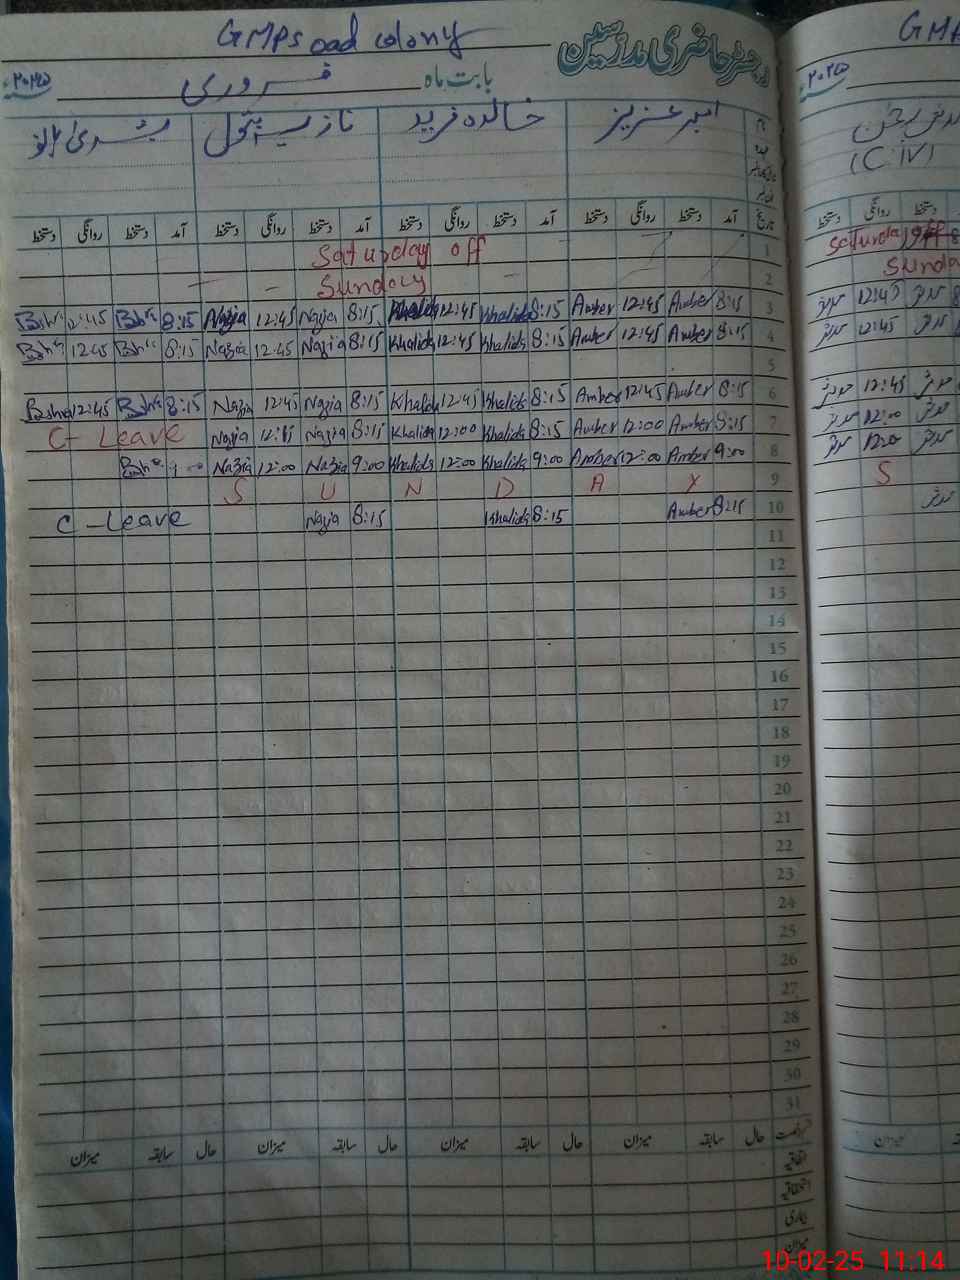 GMPs oad colony
رجسٹر حاضری مدرسین
بابت ماہ فروری ۲۰۲۵ء
امبر عزیز خالدہ فرید نازیہ بشریٰ
تاریخ آمد دستخط روانگی دستخط آمد دستخط روانگی دستخط آمد دستخط روانگی دستخط آمد دستخط روانگی دستخط
Saturday off 1
Sunday 2
12:45 8:15 Nazia 12:45 Nazia 8:15 Khalida 12:45 Khalida 8:15 Amber 12:45 Amber 8:15 3
12:45 8:15 Nazia 12:45 Nazia 8:15 Khalida 12:45 Khalida 8:15 Amber 12:45 Amber 8:15 4
5
12:45 8:15 Nazia 12:45 Nazia 8:15 Khalida 12:45 Khalida 8:15 Amber 12:45 Amber 8:15 6
C- Leave Nazia Nazia 8:15 Khalida 12:00 Khalida 8:15 Amber 12:00 Amber 8:15 7
Nazia 12:00 Nazia 9:00 Khalida 12:00 Khalida 9:00 Amber 12:00 Amber 9:00 8
S U N D A Y 9
C - Leave Nazia 8:15 Khalida 8:15 Amber 8:15 10
11
12
13
14
15
16
17
18
19
20
21
22
23
24
25
26
27
28
29
30
31
حال سابقہ میزان حال سابقہ میزان حال سابقہ میزان حال سابقہ میزان
اتفاقیہ
استحقاقیہ
بیماری
میزان
۲۰۲۵ء
(C.IV)
دستخط روانگی دستخط
Saturday off
Sunda
12:45
12:45
12:45
12:00
12:00
S
میزان
10-02-25 11:14